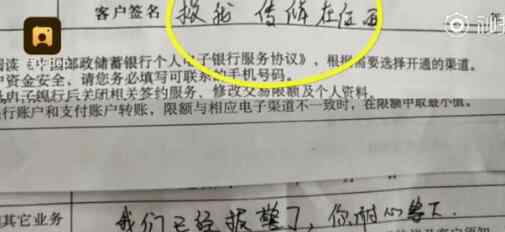 客户签名 救我 传销在任西
阅读《中国邮政储蓄银行个人电子银行服务协议》，根据需要选择开通的渠道。
户资金安全、请您务必填写可联系的手机号码。
电子银行后关闭相关签约服务、修改交易限额及个人资料。
行账户和支付账户转账，限额与相应电子渠道不一致时，在限额中取最小值。
其它业务 我们已经报警了，你耐心等下.